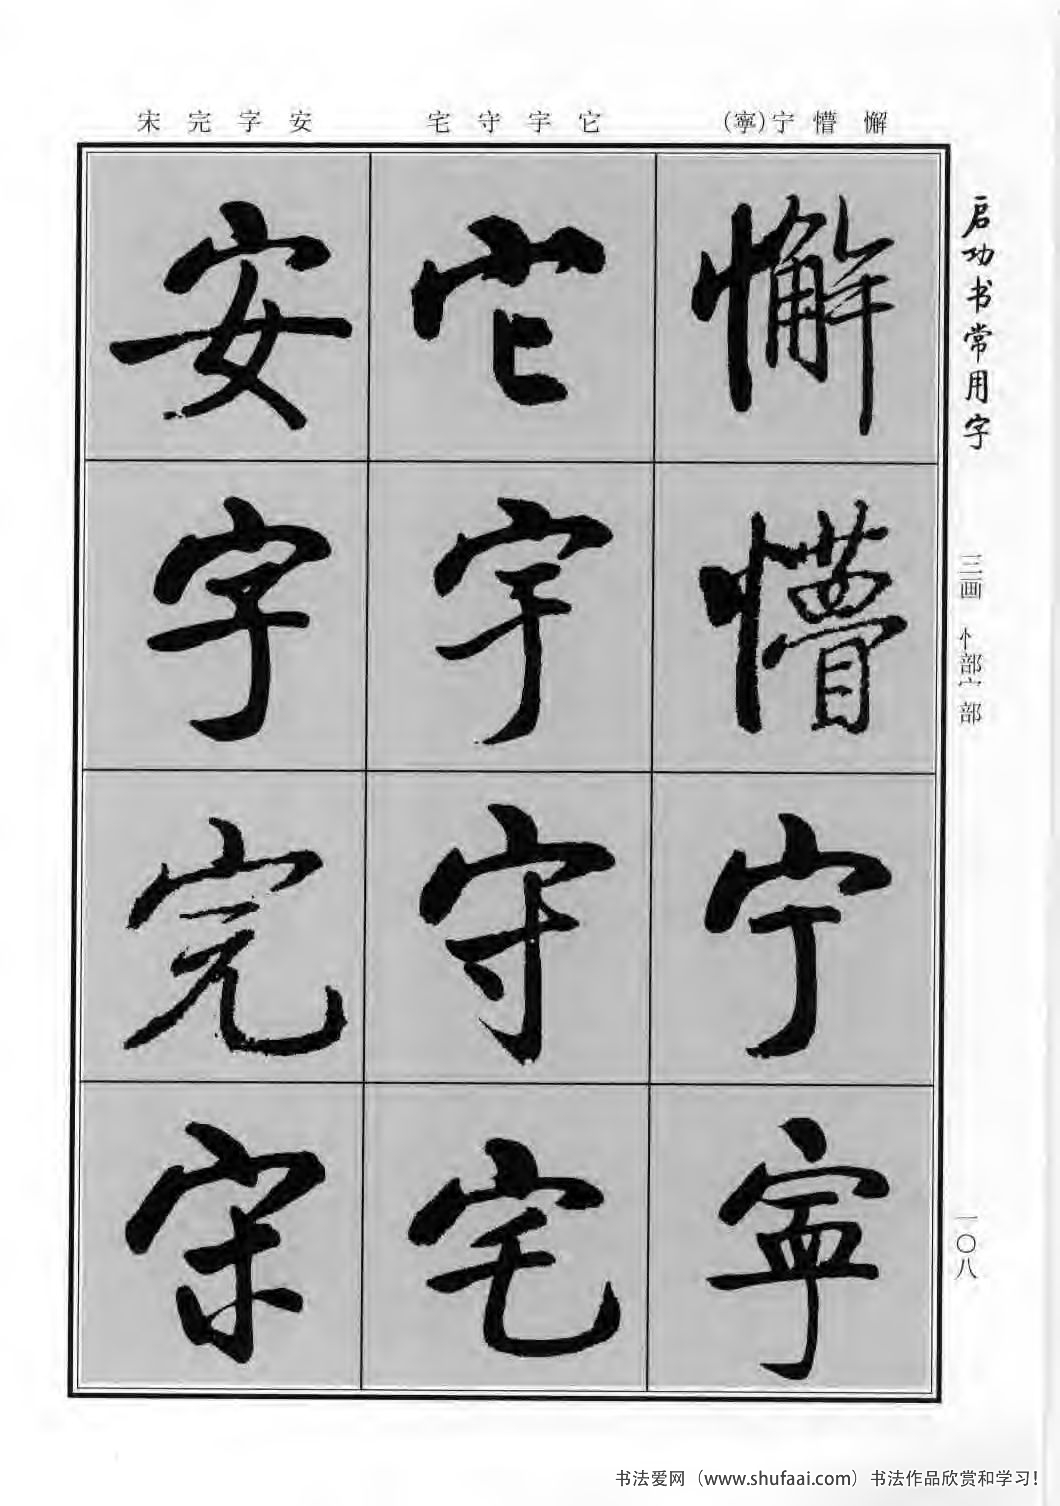 懈 懵 宁(寧)
它 宇 守 宅
安 字 完 宋
启功书常用字
三画 忄部宀部
一〇八
懈
懵
宁
寧
它
宇
守
宅
安
字
完
宋
书法爱网（www.shufaai.com）书法作品欣赏和学习！